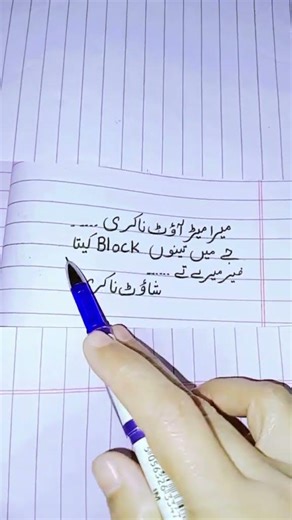 میرا میٹر آؤٹ نا کری ......
جے میں تینوں Block کیتا
فیر میرے تے ......
شاؤٹ نا کری